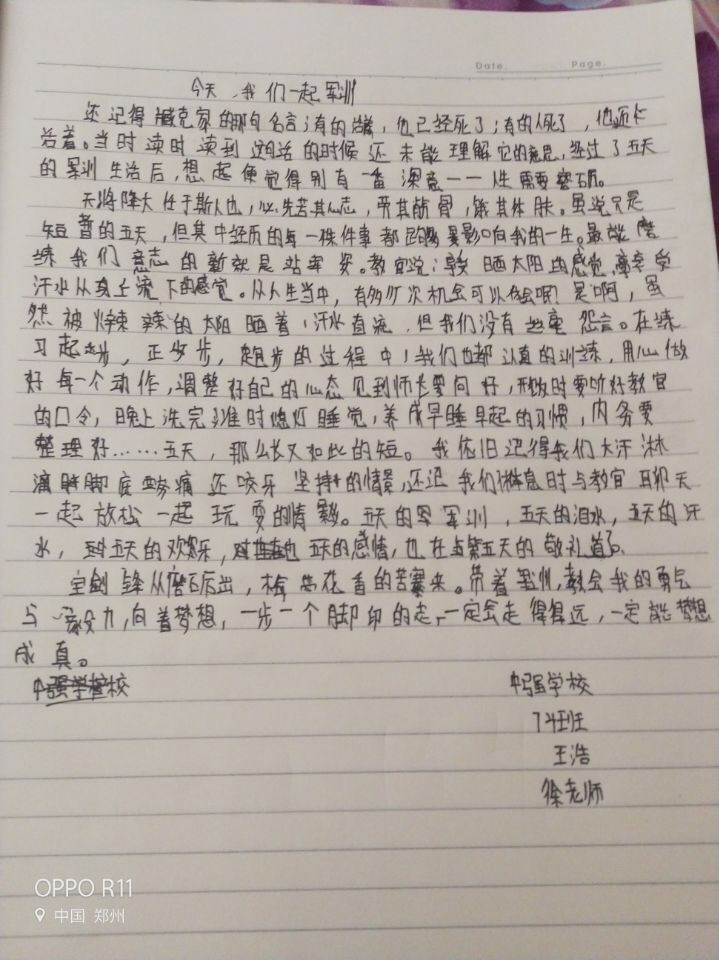 Date. Page.
今天,我们一起军训
还记得臧克家的那句名言:有的活着,他已经死了;有的人死了,他还
活着。当时读时读到这句话的时候还未能理解它的意思,经过了五天
的军训生活后,想起便觉得别有一番深意——人性需要磨砺。
天将降大任于斯人也,必先苦其心志,劳其筋骨,饿其体肤。虽说只是
短暂的五天,但其中经历的每一件事都影响我的一生。最能磨
练我们意志的就是站军姿。教官说:享受晒太阳的感觉,享受
汗水从身上流下的感觉。从人生当中,有多少次机会可以体会呢?是啊,虽
然被火辣辣的太阳晒着,汗水直流,但我们没有丝毫怨言。在练
习起步,正步,跑步的过程中,我们也都认真的训练,用心做
好每一个动作,调整好自己的心态见到师长要问好,开饭时要听好教官
的口令,晚上洗完准时熄灯睡觉,养成早睡早起的习惯,内务要
整理好……五天,那么长又如此的短。我依旧记得我们大汗淋
漓脚底疼痛还咬牙坚持的情景,还记我们休息时与教官聊天
一起放松一起玩耍的情影。五天的军训,五天的泪水,五天的汗
水,五天的欢乐,五天的感情,也在第五天的敬礼
宝剑锋从磨砺出,梅花香的苦寒来。带着军训,教会我的勇气
与毅力,向着梦想,一步一个脚印的走,一定会走得得远,一定能梦想
成真。
中强学校
中强学校
班
王浩
徐老师
OPPO R11
中国 郑州